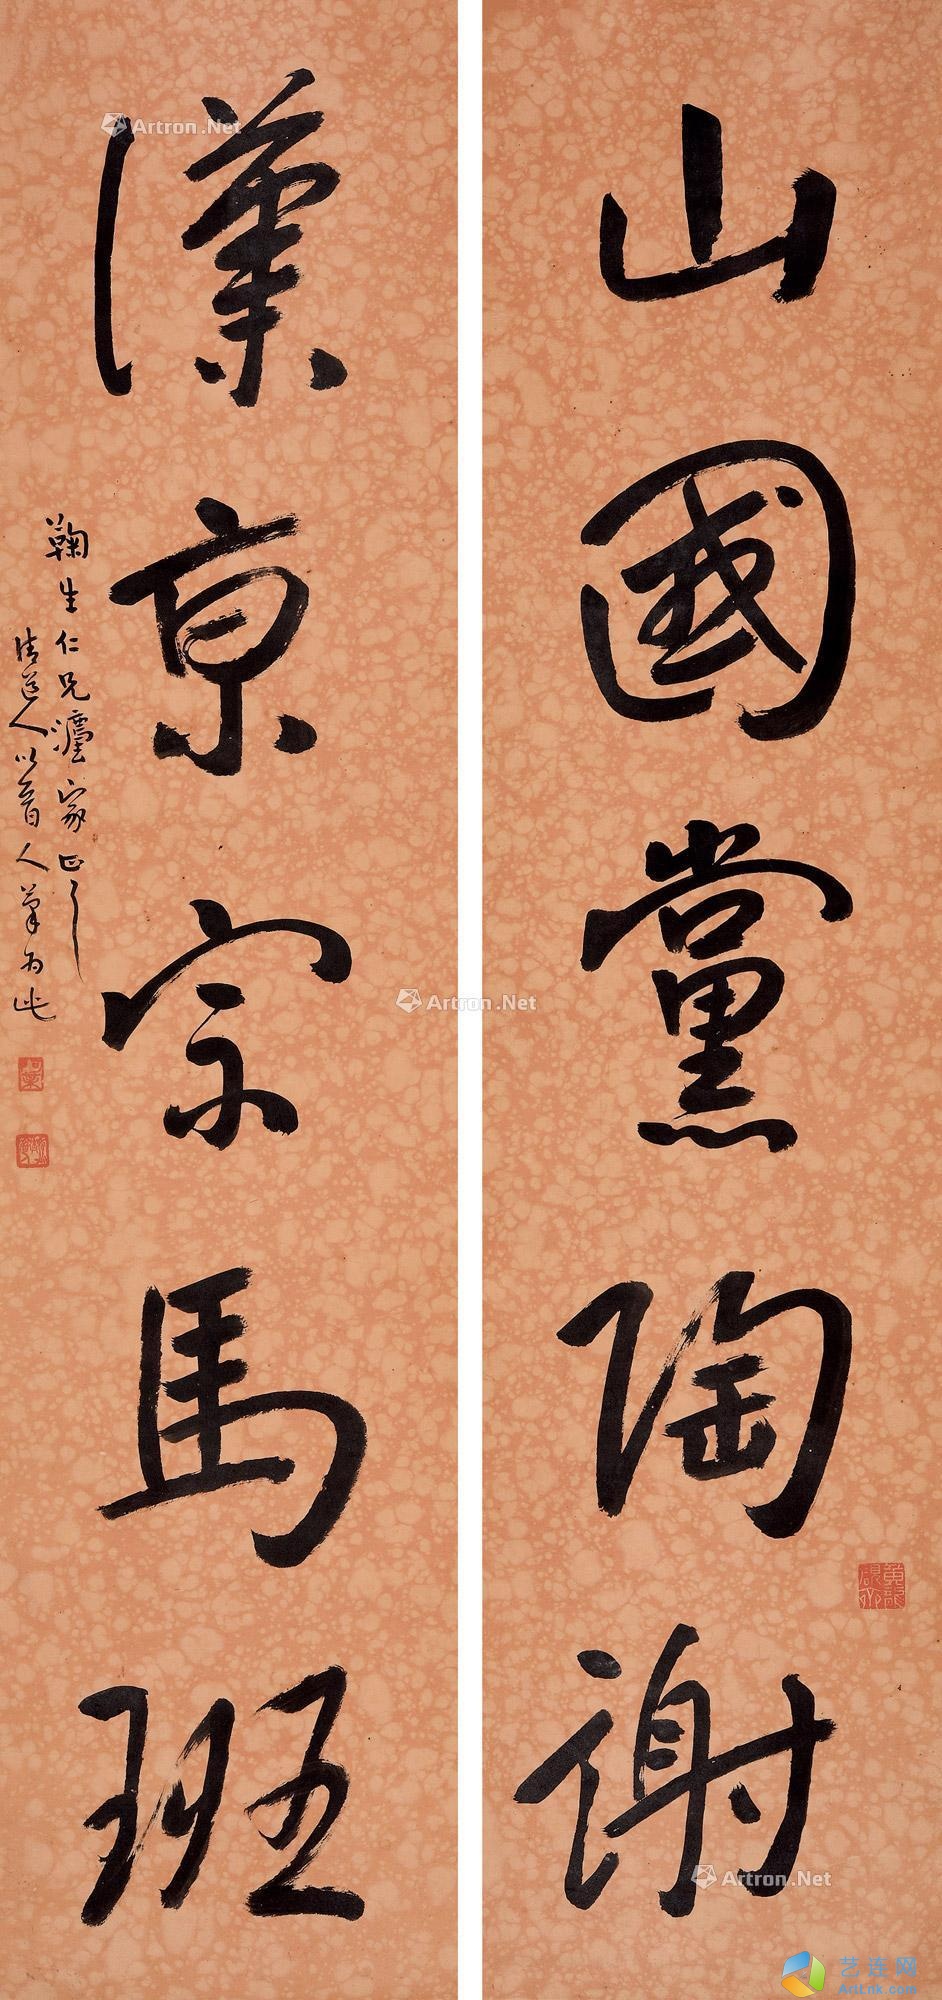 山國黨陶謝
漢京宗馬班
鞠生仁兄灋家正之
清道人以晉人筆為此
Artron.Net
Artron.Net
Artron.Net
艺连网
ArtLnk.com